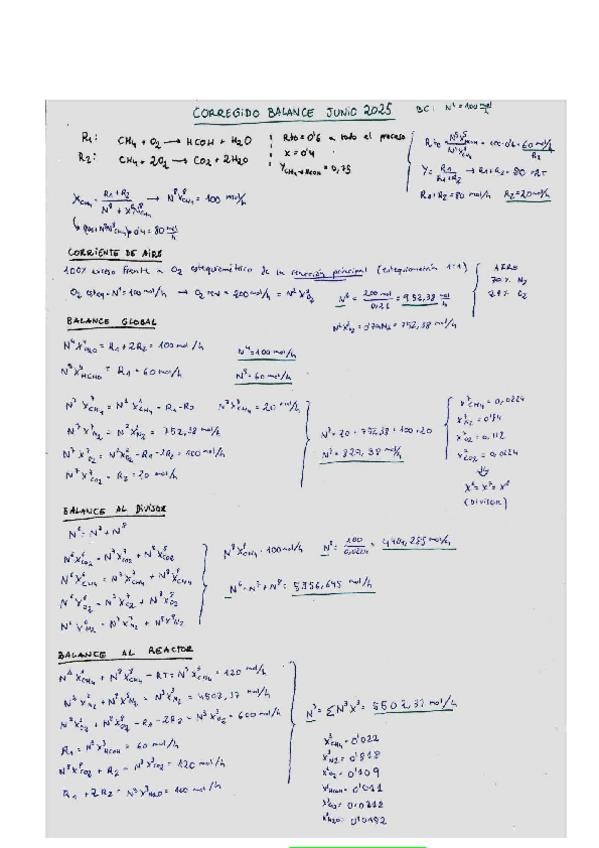 CORREGIDO BALANCE JUNIO 2025 BC: N¹=100 mol/h
R1: CH₄ + O₂ → HCOH + H₂O
R2: CH₄ + 2O₂ → CO₂ + 2H₂O
Rto=0'6 a todo el proceso
X=0'4
Y CH₄→HCOH = 0,75
= 100·0'6 = 60 mol/h
Y = R1/(R1+R2) → R1+R2 = 80 = RT
R1+R2 = 80 mol/h R2=20 mol/h
X CH₄ = → N⁸X⁸CH₄ = 100 mol/h
0'4 = 80 mol/h
CORRIENTE DE AIRE
100% exceso frente a O₂ estequiométrico de la reacción principal (estequiometría 1:1)
AIRE
O₂ esteq = N¹ = 100 mol/h → O₂ real = 200 mol/h = N²X²O₂ N² = 200 mol/0'21 = 952,38 mol/h
N²X²N₂ = 0'79N₂ = 752,38 mol/h
BALANCE GLOBAL
N⁴X⁴H₂O = R1 + 2R2 = 100 mol/h N⁴=100 mol/h
N⁵X⁵HCHO = R1 = 60 mol/h N⁵=60 mol/h
N⁷X⁷CH₄ = N¹X¹CH₄ - R1 - R2 N⁷X⁷CH₄ = 20 mol/h
N⁷X⁷N₂ = N²X²N₂ = 752,38 mol/h
N⁷X⁷O₂ = N²X²O₂ - R1 - 2R2 = 100 mol/h
N⁷X⁷CO₂ = R2 = 20 mol/h
N⁷= 20 + 752,38 + 100 + 20
x⁷CH₄ = 0,0224
x⁷N₂ = 0'84
x⁷O₂ = 0,112
x⁷CO₂ = 0,0224
X⁶ = X⁷ = X⁸
(DIVISOR)
BALANCE AL DIVISOR
N⁶ = N⁷ + N⁸
N⁶X⁶CO₂ = N⁷X⁷CO₂ + N⁸X⁸CO₂
N⁶X⁶CH₄ = N⁷X⁷CH₄ + N⁸X⁸CH₄
N⁶X⁶O₂ = N⁷X⁷O₂ + N⁸X⁸O₂
N⁶X⁶N₂ = N⁷X⁷N₂ + N⁸X⁸N₂
N⁸X⁸CH₄ = 100 mol/h N⁸= 100/0,0224 = mol/h
N⁶ = N⁷ + N⁸ = mol/h
BALANCE AL REACTOR
N¹X¹CH₄ + N⁸X⁸CH₄ - RT = N³X³CH₄ = 120 mol/h
N²X²N₂ + N⁸X⁸N₂ = N³X³N₂ = 4502,37 mol/h
N²X²O₂ + N⁸X⁸O₂ - R1 - 2R2 = N³X³O₂ = 600 mol/h
R1 = N³X³HCOH = 60 mol/h
N⁸X⁸CO₂ + R2 = N³X³CO₂ = 120 mol/h
R1 + 2R2 = N³X³H₂O = 100 mol/h
N³ = ΣN³X³ = 5502,37 mol/h
x³CH₄ = 0'022
x³N₂ = 0'818
x³O₂ = 0'109
x³HCOH = 0'011